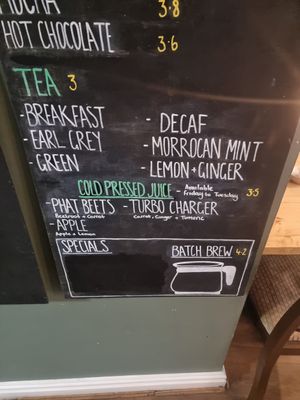 MOCHA 3.8
HOT CHOCOLATE 3.6
TEA 3
-BREAKFAST - DECAF
-EARL GREY - MORROCAN MINT
-GREEN - LEMON + GINGER
COLD PRESSED JUICE - Available Friday to Tuesday 3.5
-PHAT BEETS - TURBO CHARGER
Beetroot + Carrot Carrot, Ginger + Turmeric
-APPLE
Apple + Lemon
SPECIALS BATCH BREW 4.2